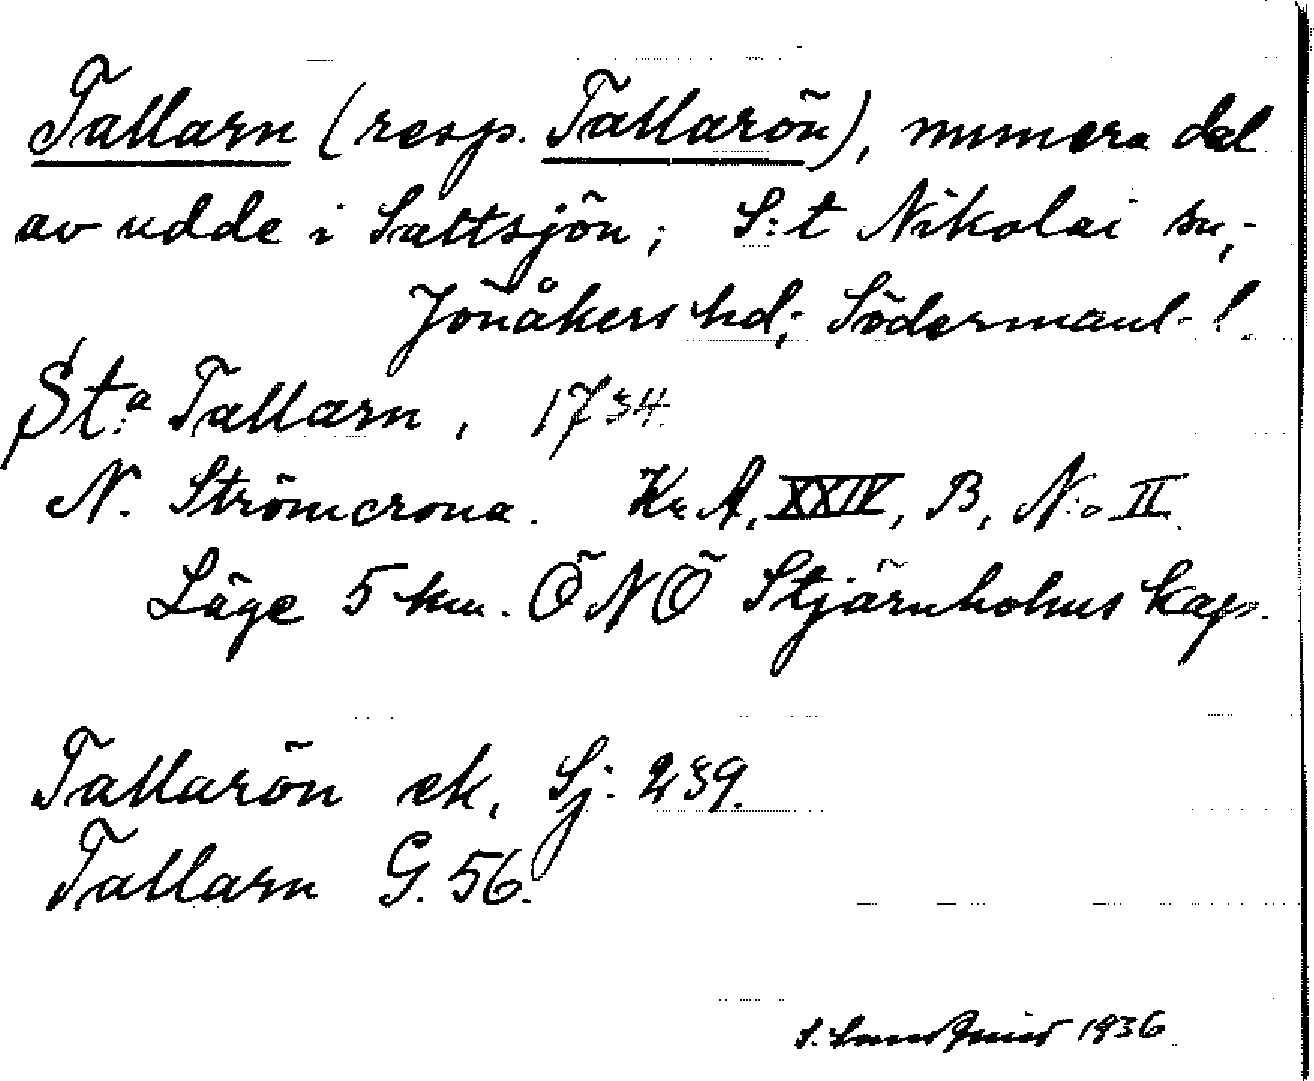 Tallarn (resp. Tallarön), numera del
av udde i Saltsjön; S:t Nikolai sn,
Jönåkers hd, Södermanl. l.
St:a Tallarn, 1734
N. Strömcrona. Kr. A. XXIV, B, N:o II.
Läge 5 km. ÖNÖ Stjärnholms kap.
Tallarön ek. Sj: 239.
Tallarn G. 56.
S. 1936